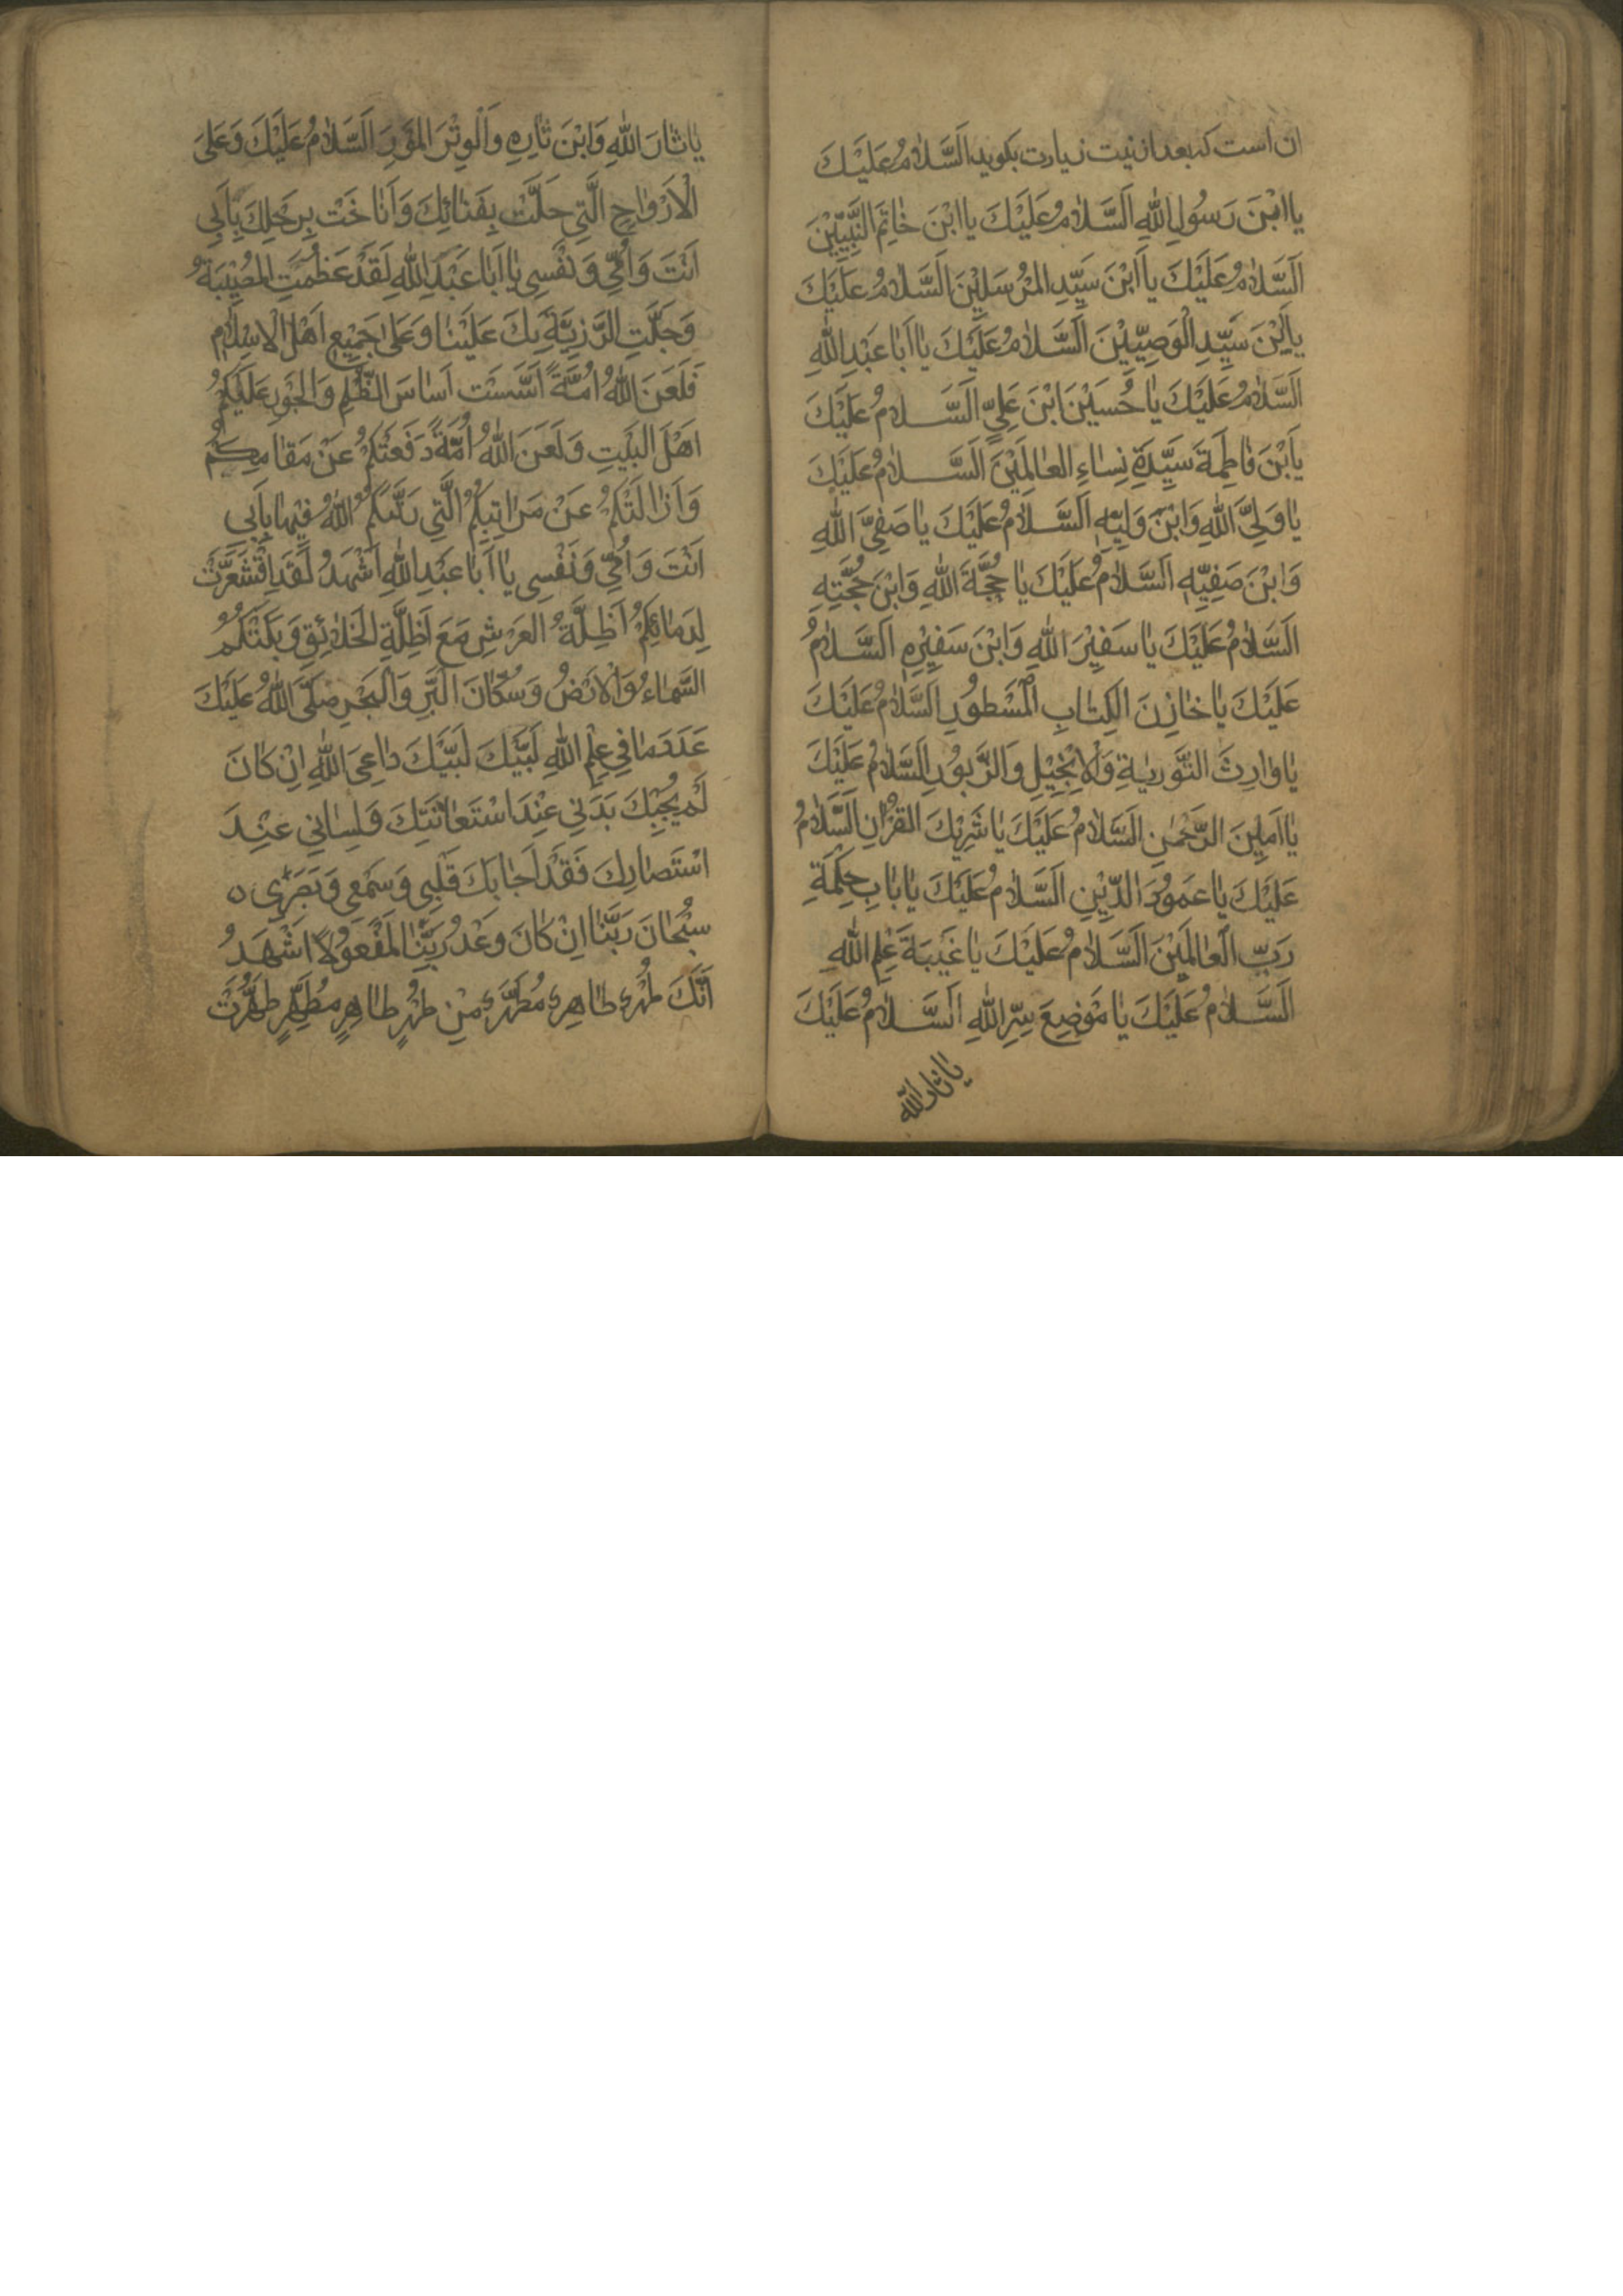 ان است که بعد از نیت زیارت بکوید اَلسَّلَامُ عَلَیْكَ
یَا ابْنَ رَسُولِ اللهِ اَلسَّلَامُ عَلَیْكَ یَا ابْنَ خَاتَمِ النَّبِیِّیْنَ
اَلسَّلَامُ عَلَیْكَ یَا اَبْنَ سَیِّدِ الْمُرْسَلِیْنَ اَلسَّلَامُ عَلَیْكَ
یَا بْنَ سَیِّدِ الْوَصِیِّیْنَ اَلسَّلَامُ عَلَیْكَ یَا اَبَا عَبْدِ اللهِ
اَلسَّلَامُ عَلَیْكَ یَا حُسَیْنَ ابْنَ عَلِیٍّ اَلسَّلَامُ عَلَیْكَ
یَا بْنَ فَاطِمَةَ سَیِّدَةِ نِسَاءِ الْعَالَمِیْنَ اَلسَّلَامُ عَلَیْكَ
یَا وَلِیَّ اللهِ وَابْنَ وَلِیِّهِ اَلسَّلَامُ عَلَیْكَ یَا صَفِیَّ اللهِ
وَابْنَ صَفِیِّهِ اَلسَّلَامُ عَلَیْكَ یَا حُجَّةَ اللهِ وَابْنَ حُجَّتِهِ
اَلسَّلَامُ عَلَیْكَ یَا سَفِیْرَ اللهِ وَابْنَ سَفِیْرِهِ اَلسَّلَامُ
عَلَیْكَ یَا خَازِنَ الْکِتَابِ الْمَسْطُوْرِ اَلسَّلَامُ عَلَیْكَ
یَا وَارِثَ التَّوْرِیٰةِ وَالْاِنْجِیْلِ وَالزَّبُوْرِ اَلسَّلَامُ عَلَیْكَ
یَا اَمِیْنَ الرَّحْمٰنِ اَلسَّلَامُ عَلَیْكَ یَا شَرِیْكَ الْقُرْاٰنِ اَلسَّلَامُ
عَلَیْكَ یَا عَمُوْدَ الدِّیْنِ اَلسَّلَامُ عَلَیْكَ یَا بَابَ حِکْمَةِ
رَبِّ الْعَالَمِیْنَ اَلسَّلَامُ عَلَیْكَ یَا عَیْبَةَ عِلْمِ اللهِ
اَلسَّلَامُ عَلَیْكَ یَا مَوْضِعَ سِرِّ اللهِ اَلسَّلَامُ عَلَیْكَ
یا ثار الله
یَا ثَارَ اللهِ وَابْنَ ثَارِهِ وَالْوِتْرَ الْمَوْتُوْرَ اَلسَّلَامُ عَلَیْكَ وَعَلَی
الْاَرْوَاحِ الَّتِی حَلَّتْ بِفِنَائِكَ وَاَنَاخَتْ بِرَحْلِكَ بِاَبِی
اَنْتَ وَاُمِّی وَنَفْسِی یَا اَبَا عَبْدِ اللهِ لَقَدْ عَظُمَتِ الْمُصِیْبَةُ
وَجَلَّتِ الرَّزِیَّةُ بِكَ عَلَیْنَا وَعَلَی جَمِیْعِ اَهْلِ الْاِسْلَامِ
فَلَعَنَ اللهُ اُمَّةً اَسَّسَتْ اَسَاسَ الظُّلْمِ وَالْجَوْرِ عَلَیْکُمْ
اَهْلَ الْبَیْتِ وَلَعَنَ اللهُ اُمَّةً دَفَعَتْکُمْ عَنْ مَقَامِکُمْ
وَاَزَالَتْکُمْ عَنْ مَرَاتِبِکُمُ الَّتِی رَتَّبَکُمُ اللهُ فِیْهَا بِاَبِی
اَنْتَ وَاُمِّی وَنَفْسِی یَا اَبَا عَبْدِ اللهِ اَشْهَدُ لَقَدِ اقْشَعَرَّتْ
لِدِمَائِکُمْ اَظِلَّةُ الْعَرْشِ مَعَ اَظِلَّةِ الْخَلَائِقِ وَبَکَتْکُمُ
السَّمَاءُ وَالْاَرْضُ وَسُکَّانُ الْبَرِّ وَالْبَحْرِ صَلَّی اللهُ عَلَیْكَ
عَدَدَ مَا فِی عِلْمِ اللهِ لَبَّیْكَ لَبَّیْكَ دَاعِیَ اللهِ اِنْ کَانَ
لَمْ یُجِبْكَ بَدَنِی عِنْدَ اسْتِغَاثَتِكَ وَلِسَانِی عِنْدَ
اسْتِنْصَارِكَ فَقَدْ اَجَابَكَ قَلْبِی وَسَمْعِی وَبَصَرِی ه
سُبْحَانَ رَبِّنَا اِنْ کَانَ وَعْدُ رَبِّنَا لَمَفْعُوْلًا اَشْهَدُ
اَنَّكَ طُهْرٌ طَاهِرٌ مُطَهَّرٌ مِنْ طُهْرٍ طَاهِرٍ مُطَهَّرٍ طَهُرْتَ